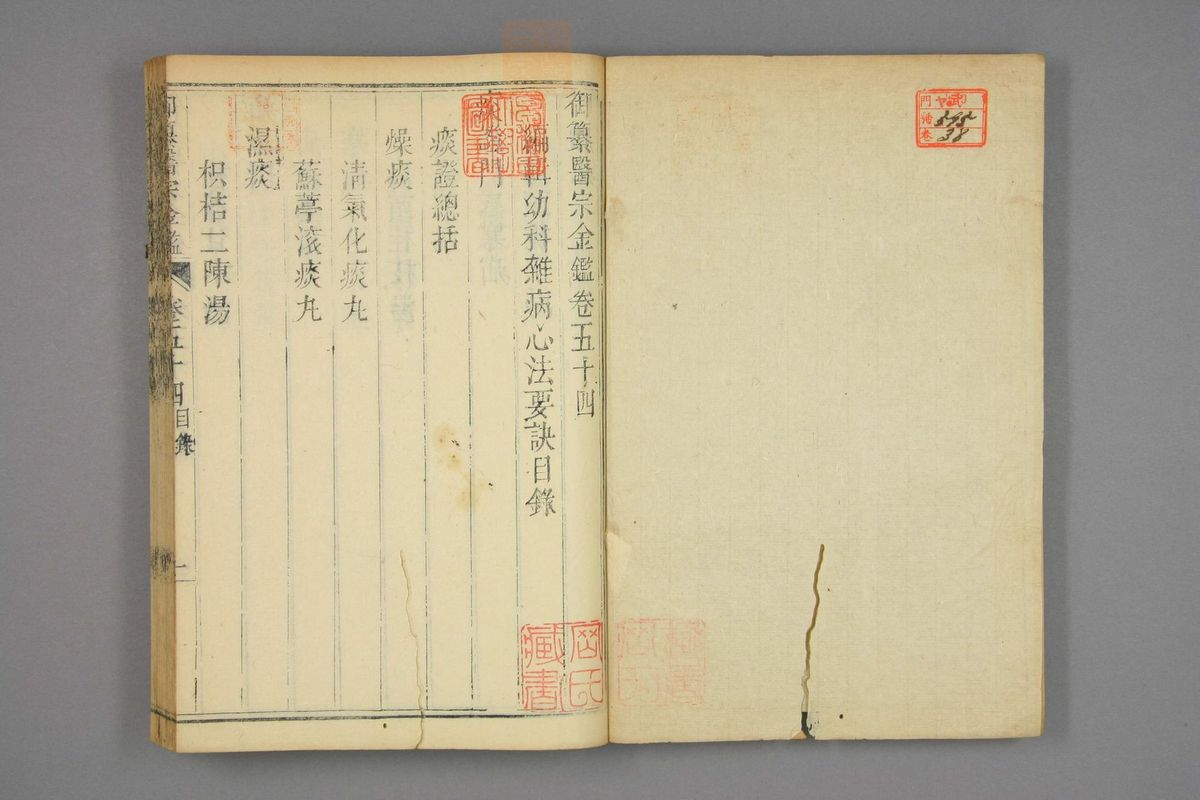 御纂醫宗金鑑卷五十四
編輯幼科雜病心法要訣目錄
痰證門
痰證總括
燥痰
清氣化痰丸
蘇葶滚痰丸
濕痰
枳桔二陳湯
御纂醫宗金鑑
卷五十四
目錄
一
藏書
氏
門
號
卷
595
38